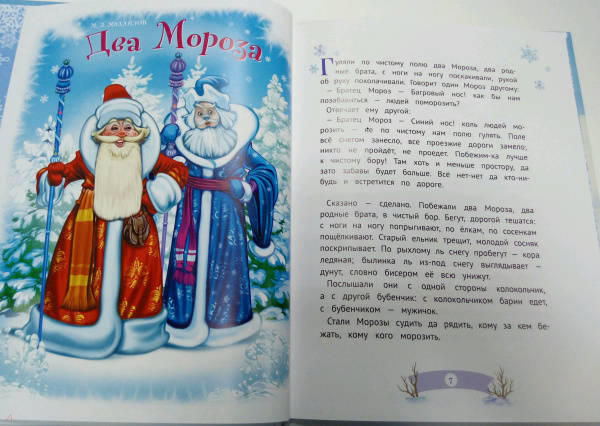 М. Л. МИХАЙЛОВ
Два Мороза
Гуляли по чистому полю два Мороза, два род-
ные брата, с ноги на ногу поскакивали, рукой
об руку поколачивали. Говорит один Мороз другому:
– Братец Мороз — Багровый нос! как бы нам
позабавиться — людей поморозить?
Отвечает ему другой:
– Братец Мороз — Синий нос! коль людей мо-
розить — не по чистому нам полю гулять. Поле
всё снегом занесло, все проезжие дороги замело;
никто не пройдёт, не проедет. Побежим-ка лучше
к чистому бору! Там хоть и меньше простору, да
зато забавы будет больше. Всё нет-нет да кто-ни-
будь и встретится по дороге.
Сказано — сделано. Побежали два Мороза, два
родные брата, в чистый бор. Бегут, дорогой тешатся:
с ноги на ногу попрыгивают, по ёлкам, по сосенкам
пощёлкивают. Старый ельник трещит, молодой сосняк
поскрипывает. По рыхлому ль снегу пробегут — кора
ледяная; былинка ль из-под снегу выглядывает —
дунут, словно бисером её всю унижут.
Послышали они с одной стороны колокольчик,
а с другой бубенчик: с колокольчиком барин едет,
с бубенчиком — мужичок.
Стали Морозы судить да рядить, кому за кем бе-
жать, кому кого морозить.
7